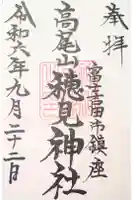 奉拝
富士吉田市鎮座
高尾山穂見神社
令和六年九月二十二日